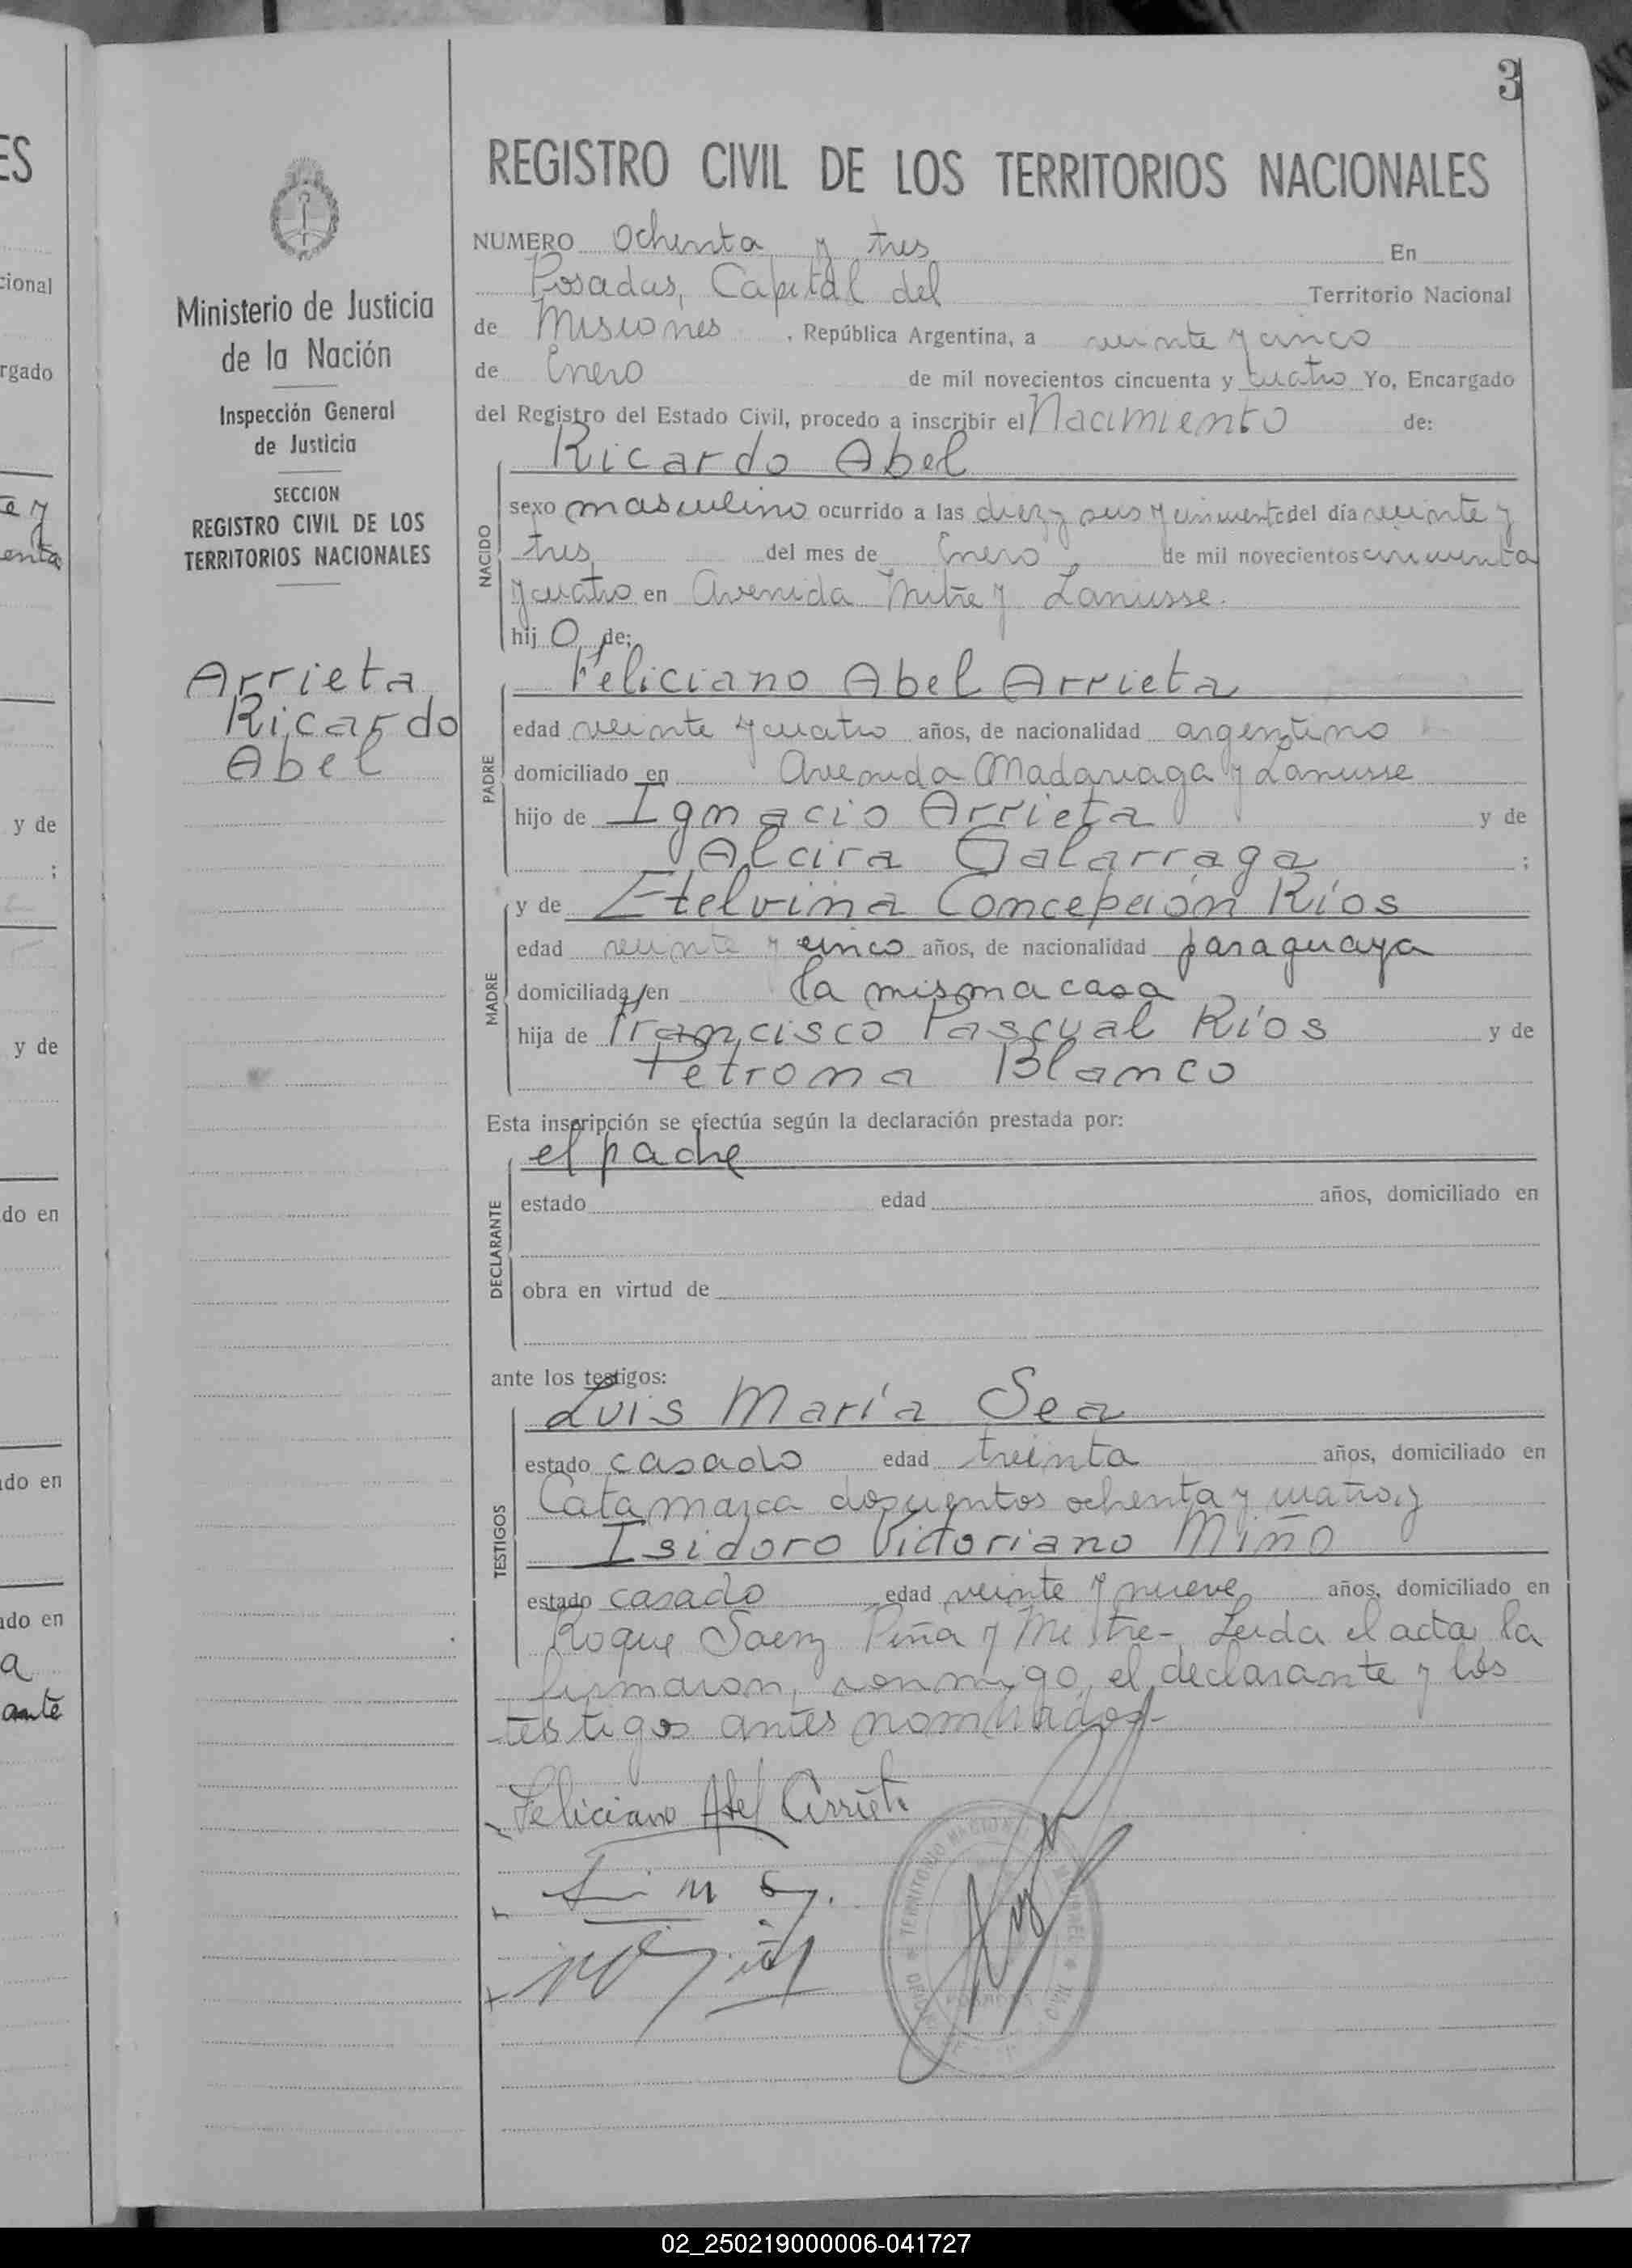 3
REGISTRO CIVIL DE LOS TERRITORIOS NACIONALES
NUMERO Ochenta y tres En
Posadas, Capital del Territorio Nacional
de Misiones, República Argentina, a veinte y cinco
de Enero de mil novecientos cincuenta y cuatro Yo, Encargado
del Registro del Estado Civil, procedo a inscribir el Nacimiento de:
Ricardo Abel
NACIDO
sexo masculino ocurrido a las diez y seis y cincuenta del día veinte y
tres del mes de Enero de mil novecientos cincuenta
y cuatro en Avenida Mitre y Lanusse.
hijo de:
Feliciano Abel Arrieta
PADRE
edad veinte y cuatro años, de nacionalidad argentino
domiciliado en Avenida Madariaga y Lanusse
hijo de Ignacio Arrieta y de
Alcira Galarraga ;
y de Etelvina Concepción Ríos
MADRE
edad veinte y cinco años, de nacionalidad paraguaya
domiciliada en la misma casa
hija de Francisco Pascual Ríos y de
Petrona Blanco
Esta inscripción se efectúa según la declaración prestada por:
el padre
DECLARANTE
estado edad años, domiciliado en
obra en virtud de
ante los testigos:
Luis María Sea
TESTIGOS
estado casado edad treinta años, domiciliado en
Catamarca doscientos ochenta y cuatro, y
Isidoro Victoriano Miño
estado casado edad veinte y nueve años, domiciliado en
Roque Saenz Peña y Mitre-, Leida el acta, la
firmaron, conmigo, el declarante y los
testigos antes nombrados-
Feliciano Abel Arrieta
Ministerio de Justicia
de la Nación
Inspección General
de Justicia
SECCION
REGISTRO CIVIL DE LOS
TERRITORIOS NACIONALES
Arrieta
Ricardo
Abel
ES
cional
rgado
e y
enta
y de
;
y de
do en
do en
do en
a
ante
02_250219000006-041727